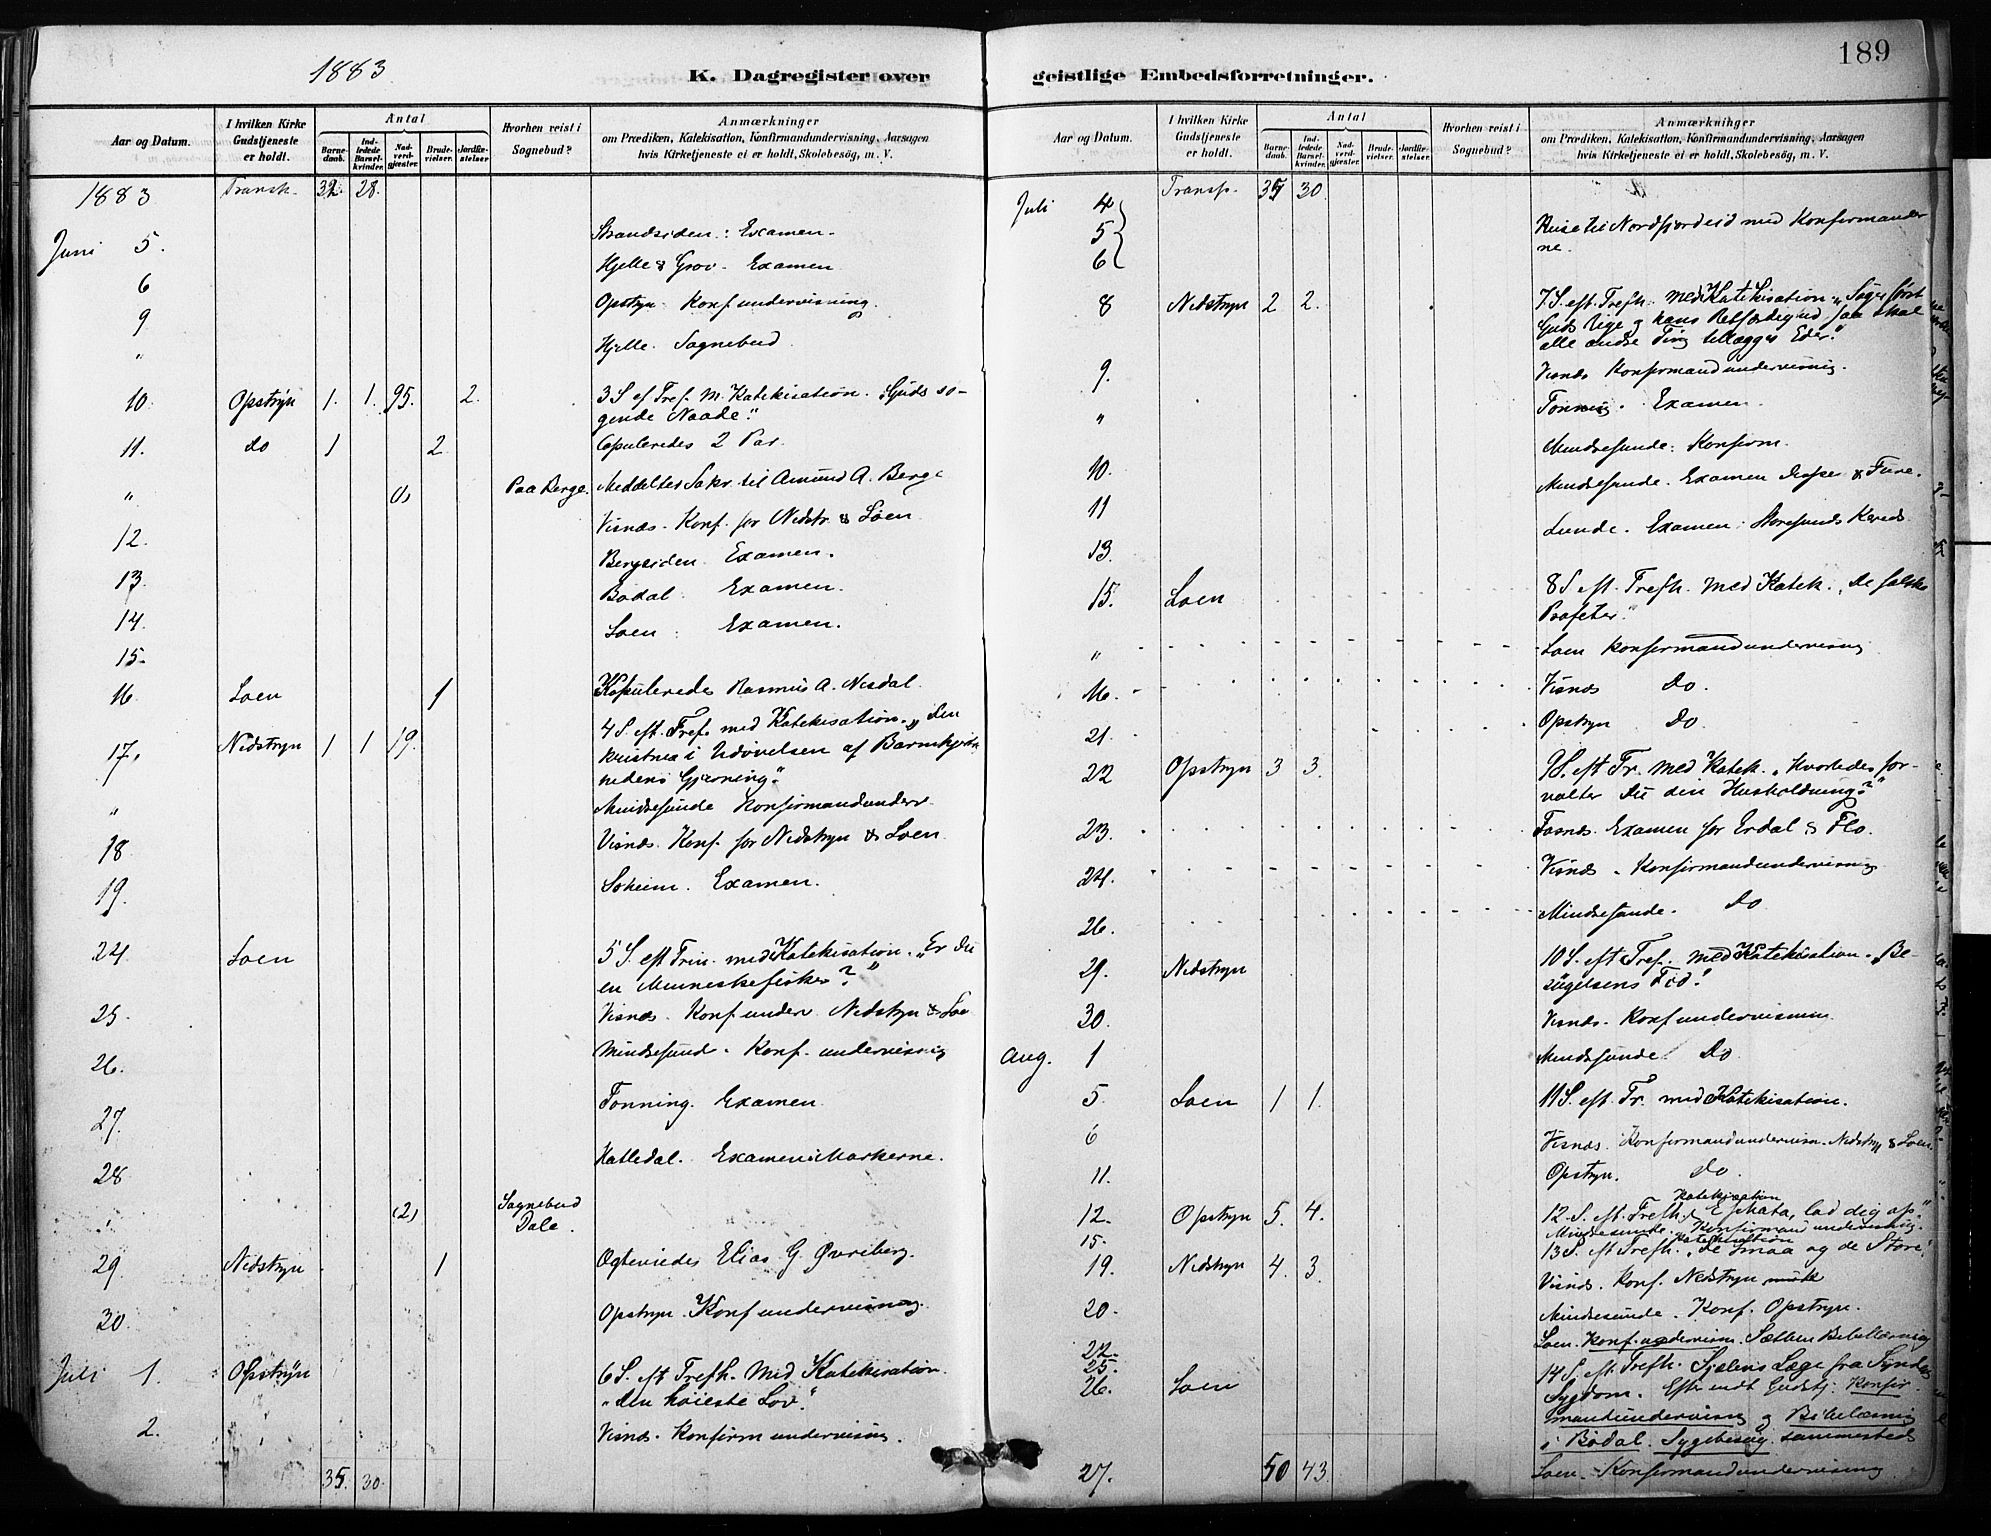 189
1883
K. Dagregister over geistlige Embedsforretninger.
Aar og Datum.
I hvilken Kirke Gudstjeneste er holdt.
Antal
Barnedaab.
Indledede Barselkvinder.
Nadverdgjester.
Brudevielser.
Jordfæstelser
Hvorhen reist i Sognebud?
Anmærkninger
om Prædiken, Katekisation, Konfirmandundervisning, Aarsagen
hvis Kirketjeneste ei er holdt, Skolebesøg, m. V.
1883 Transk. 32 28.
Juni 5. Strandsiden: Examen.
6 Hjelle & Grov. Examen
9 Opstryn. Konfundervisning.
" Hjelle. Sognebud
10 Opstryn 1. 1. 95. 2. 3 S ef Tref. M. Katekisation. "Guds sø-
gende Naade."
11. do 1 2 Copuleredes 2 Par.
" Paa Berge. Meddeltes Sakr. til Amund A. Berge
12. Visnæs. Konf. for Nedstr. & Loen
13. Bergsiden Examen.
14. Bødal. Examen.
15. Loen: Examen.
16 Loen 1 Kopuleredes Rasmus A. Nesdal.
17. Nedstryn 1 1 19. 4 S. eft. Tref. med Katekisation. "Den
kristnes i Udøvelsen af Barmhjertig
hedens Gjerning."
" Mindresunde Konfirmandunderv.
18 Visnæs. Konf. for Nedstryn & Loen.
19. Soheim. Examen.
24 Loen 5 S. eft Trin. med Katekisation. "Er du
en Menneskefisker?"
25 Visnæs. Konfunderv Nedstryn & Loe
26. Mindresund. Konf. undervisnig
27. Tonning. Examen
28 Hatledal. Examen i Markerne.
(2) Sognebud
Dale.
29. Nedstryn 1 Ogteviedes Elias G. Øvreberg.
30. Opstryn. Konfundervisning.
Juli 1. Opstryn 6 S. eft Trefh. Med Katekisation.
"den høieste Lov."
2. Visnæs. Konfirmundervisnig.
35. 30.
Aar og Datum.
I hvilken Kirke Gudstjeneste er holdt.
Antal
Barnedaab.
Indledede Barselkvinder.
Nadverdgjester.
Brudevielser.
Jordfæstelser
Hvorhen reist i Sognebud?
Anmærkninger
om Prædiken, Katekisation, Konfirmandundervisning, Aarsagen
hvis Kirketjeneste ei er holdt, Skolebesøg, m. V.
Transp. 35 30
Juli 4 5 6 Reise til Nordfjordeid med Konfirmander
ne.
8 Nedstryn 2 2. 7 S. eft. Trefh. Med Katekisation. "Søger først
Guds Rige og hans Retfærdighed saa skal
alle andre Ting tillægges Eder."
9. Visnæs Konfirmandundervisnig.
" Tonning. Examen
10. Mindresunde: Konfirm.
11 Mindresunde. Examen & Fure.
13. Lunde. Examen: Storesunds Kreds
15. Loen 8 S. eft. Trefh. Med Katek. "De falske
Profeter."
" Loen Konfirmandundervisnig
16. Visnæs Do.
21. Opstryn Do.
22 Opstryn 3 3. 9 S. eft Tr. Med Katek. "Hvorledes for-
valter Du din Husholdning?"
23. Fosnæs. Examen for Erdal & Flo.
24. Visnæs. Konfirmandundervisnig
26. Mindresunde. Do
29. Nedstryn 10 S. eft Tref. Med Katekisation. Be-
søgelsens Tid!
30. Visnæs. Konfundervisnin
Aug. 1 Mindresunde. Do
5. Loen 1 1. 11 S. eft. Tr. med Katekisation.
6 Visnæs. Konfirmandundervisn. Nedstry & Loen
11. Opstryn. do.
12. Opstryn 5. 4. 12. S. eft. Trefh. Katekisation "Ephata, lad dig op."
15. Mindresunde. Konfirmandundervisnig.
19. Nedstryn 4. 3. 13 S. eft Trefh. Katekisation "De Smaa og de Store."
Visnæs. Konf. Nedstryn
20. Mindresunde. Konf. Opstryn.
22. Loen. Konf. undervisn. Sætten Bibellæsnig
25.
26. Loen 14 S. eft. Trefh. Sjælens Læge fra Synden
Sygdom. Efter endt Gudstj. Konfir-
mandundervisng og Bibellæsnig
i Bødal. Sygebesøg sammesteds
27. Loen. Konfirmandundervisning
50 43.